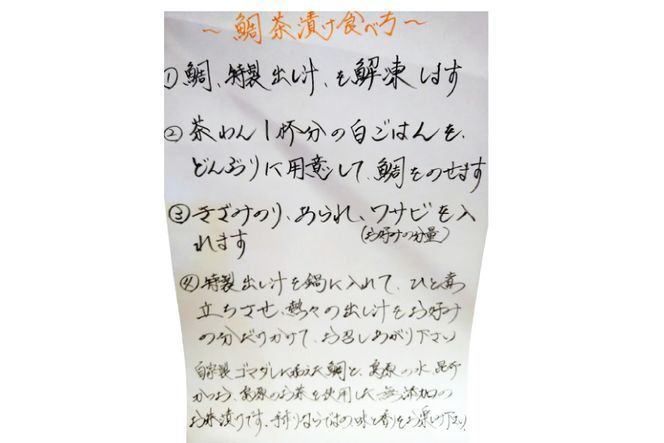 ～鯛茶漬け食べ方～
①鯛、特製出し汁、を解凍します
②茶わん1杯分の白ごはんを、
どんぶりに用意して、鯛をのせます
③きざみのり、あられ、ワサビを入
(お好みの分量)
れます
④特製出し汁を鍋に入れて、ひと煮
立ちさせ、熱々の出し汁をお好み
の分だけかけて、お召しあがり下さい
自家製ゴマダレに漬えた鯛と、島原の水、昆布
かつお、島原のお茶を使用した無添加の
お茶漬けです。手作りならではの味と香りをお楽しみ下さい